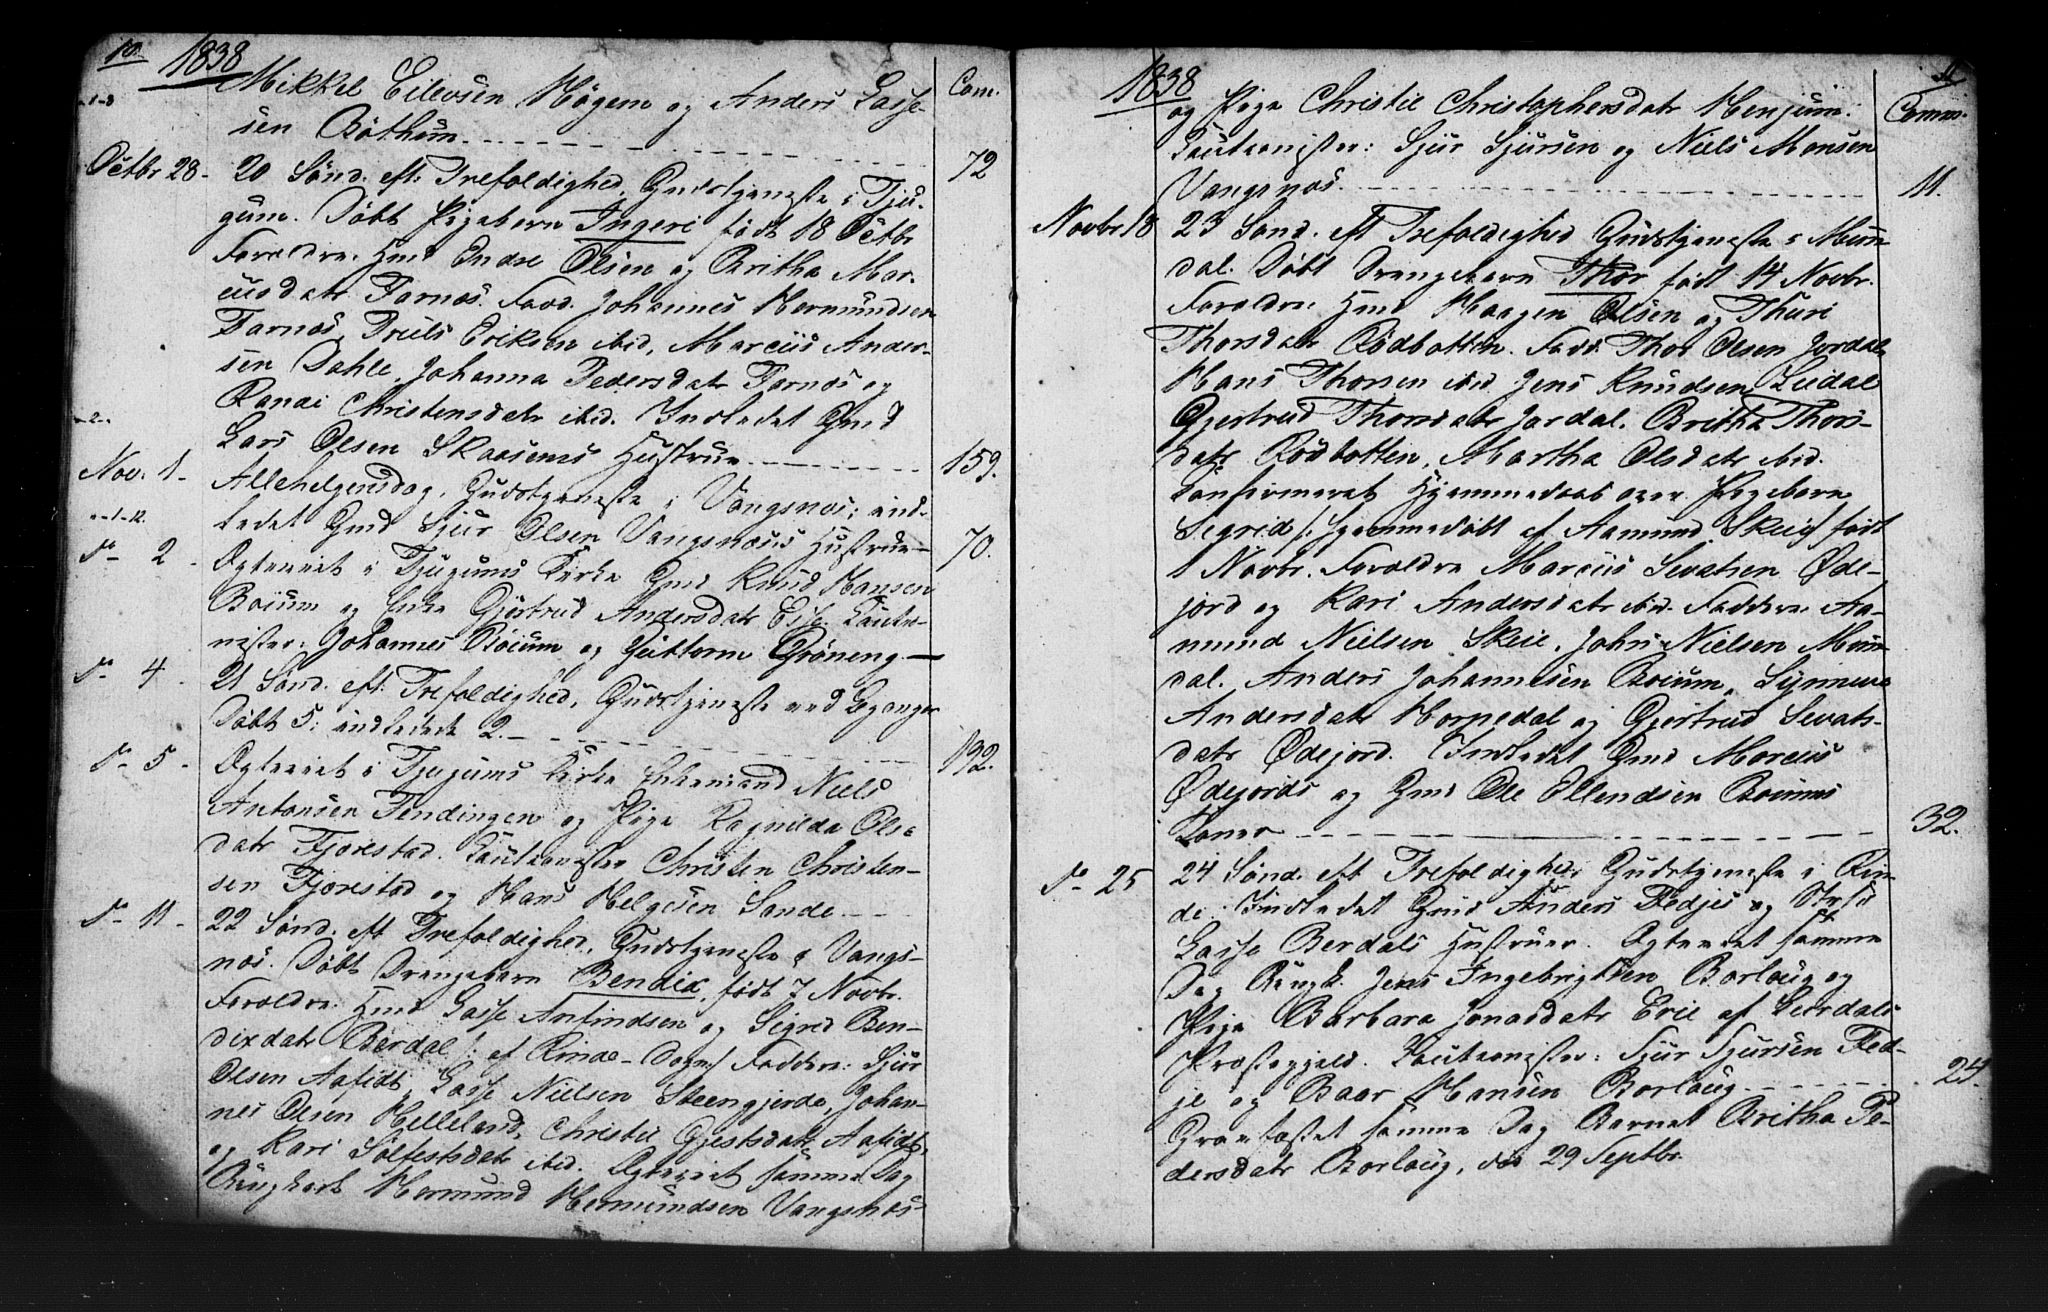 10. 1838
Com.
Mikkel Eilevsen Högem og Anders Lasse-
sen Böthum
72
Octbr 28. 20 Sønd. eft: Trefoldighed, Gudstjeneste i Tju-
gum. Døbt Pigebarn Ingeri født 18 Octbr
Forældre: Gmd Endre Olsen og Britha Mar-
cusdatr Farnæs. Fadd. Johannes Hermundsen
Farnæs, Truls Eriksen ibid, Marcus Ander-
sen Dahle, Johanna Pedersdatr Farnæs og
Randi Christensdatr ibid. Indledet Gmd
Lars Olsen Skaasems Hustrue
159.
Nov. 1. Allehelgensdag, Gudstjeneste i Vangsnæs; ind-
ledet Gmd Sjur Olsen Vangsnæs's Hustrue
70.
do 2. Ægteviet i Tjugums Kirke Gmd Knud Hansen
Böium og Enke Gjertrud Andersdatr Esse. Cauto-
nister: Johannes Böium og Guttorm Gröneng
do 4. 21 Sønd. eft: Trefoldighed, Gudstjeneste ved Leganger
Døbt 5; indledede 2.
192.
do 5. Ægteviet i Tjugums Kirke Enkemand Niels
Antonsen Tendingen og Pige Ragnilda Ols-
datr Fjærestad. Cautionister Christen Christen-
sen Fjærestad og Hans Helgesen Sande.
do 11. 22 Sønd. eft Trefoldighed, Gudstjeneste i Vangs-
næs. Døbt Drengebarn Bendix, født 7 Novbr.
Forældre: Gmd Lasse Anfindsen og Sigrid Ben-
dixdatr Berdal /: af Rinde-Sogn:/ Faddere: Sjur
Olsen Aafidt, Lasse Nielsen Steengjerde, Johan-
nes Olsen Helleland, Christie Gjestsdatr Aafidt,
og Kari Sölfestsdatr ibid. Ægteviet samme Dag
Ungkarl Hermund Hermundsen Vangsnæs
1838
11
Comm.
og Pige Christie Christophersdatr Henjum.
Cautionister: Sjur Sjursen og Niels Monsen
Vangsnæs.
11.
Novbr. 18 23 Sønd. eft Trefoldighed Gudstjeneste i Mun-
dal. Døbt Drengebarn Thor født 14 Novbr.
Forældre: Gmd Haagen Olsen og Thuri
Thorsdatr Rödbotten. Fadd: Thor Olsen Jordal,
Hans Thorsen ibid Jens Knudsen Lidal
Gjertrud Thorsdatr Jordal. Britha Thors-
datr Rödbotten, Martha Olsdatr ibid.
Confirmeret Hjemmedaab over Pigebarn
Sigrid /: hjemmedøbt af Aamund Skeie:/ født
1 Novbr. Forældre Marcus Sevatsen Øde-
jord og Kari Andersdatr ibid. Faddere: Aa-
mund Nielsen Skeie, John Nielsen Mun-
dal. Anders Johannesen Böium, Synneve
Andersdatr Horpedal og Gjertrud Sevats-
datr Ødejord. Indledet Gmd Marcus
Ødejords og Gmd Ole Ellendsen Böiums
Koner
32.
do 25 24 Sønd. eft Trefoldighed Gudstjeneste i Rin-
de. Indledet Gmd Anders Fedjes og
Lasse Berdals Hustruer. Ægteviet samme
Dag Ungk. Jens Ingebrigtsen Borlaug og
Pige Barbara Jonasdatr Erie af Leirdals
Præstegjeld. Cautionister: Sjur Sjursen Fed-
je og Baar Hansen Borlaug.
24
Graefæstet samme Dag Barnet Britha Pe-
dersdatr Borlaug, død 29 Septbr.